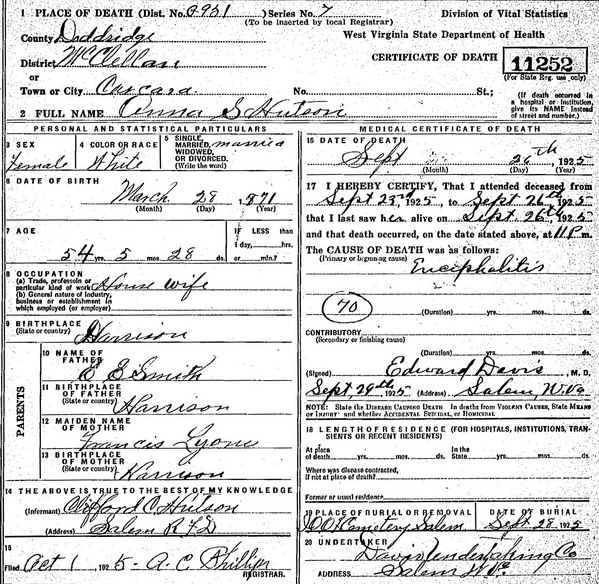 1 PLACE OF DEATH (Dist. No. 0931) Series No. 7
(To be inserted by local Registrar)
County Doddridge
District McClellan
or
Town or City Cascara No. St.;
2 FULL NAME Anna S Hutson
Division of Vital Statistics
West Virginia State Department of Health
CERTIFICATE OF DEATH
11252
(For State Reg. use only)
(If death occurred in a hospital or institution, give its NAME instead of street and number.)
PERSONAL AND STATISTICAL PARTICULARS
3 SEX
Female
4 COLOR OR RACE
White
5 SINGLE, MARRIED, WIDOWED, OR DIVORCED. (Write the word)
married
6 DATE OF BIRTH
March 28 1871
(Month) (Day) (Year)
7 AGE
54 yrs. 5 mos. 28 ds.
IF LESS than
1 day, hrs.
or min.?
8 OCCUPATION
(a) Trade, profession or particular kind of work
House wife
(b) General nature of industry, business or establishment in which employed (or employer).
9 BIRTHPLACE
(State or country)
Harrison
PARENTS
10 NAME OF FATHER
E E Smith
11 BIRTHPLACE OF FATHER
(State or country)
Harrison
12 MAIDEN NAME OF MOTHER
Francis Lyons
13 BIRTHPLACE OF MOTHER
(State or country)
Harrison
14 THE ABOVE IS TRUE TO THE BEST OF MY KNOWLEDGE
(Informant) Clifford C Hutson
(Address) Salem R F D
15
Filed Oct 1 1925 - A. C. Phillips
REGISTRAR.
MEDICAL CERTIFICATE OF DEATH
16 DATE OF DEATH
Sept 26th 1925
(Month) (Day) (Year)
17 I HEREBY CERTIFY, That I attended deceased from
Sept 23rd 1925, to Sept 26th 1925
that I last saw her alive on Sept. 26th, 1925
and that death occurred, on the date stated above, at 11 P m.
The CAUSE OF DEATH was as follows:
(Primary or beginning cause)
Enciphalitis
70
(Duration) yrs. mos. ds.
CONTRIBUTORY
(Secondary or finishing cause)
(Duration) yrs. mos. ds.
(Signed) Edward Davis, M.D.
Sept. 29th 1925 (Address) Salem, W. Va
NOTE: State the DISEASE CAUSING DEATH In deaths from VIOLENT CAUSES, State MEANS OF INJURY and whether ACCIDENTAL SUICIDAL, or HOMICIDAL.
18 LENGTH OF RESIDENCE (FOR HOSPITALS, INSTITUTIONS, TRANSIENTS OR RECENT RESIDENTS)
At place of death yrs. mos. ds. In the State yrs. mos. ds.
Where was disease contracted,
if not at place of death?
Former or usual residence
19 PLACE OF BURIAL OR REMOVAL
Cemetery Salem
DATE OF BURIAL
Sept 28 1925
20 UNDERTAKER
Davis Undertaking Co
ADDRESS Salem W. Va